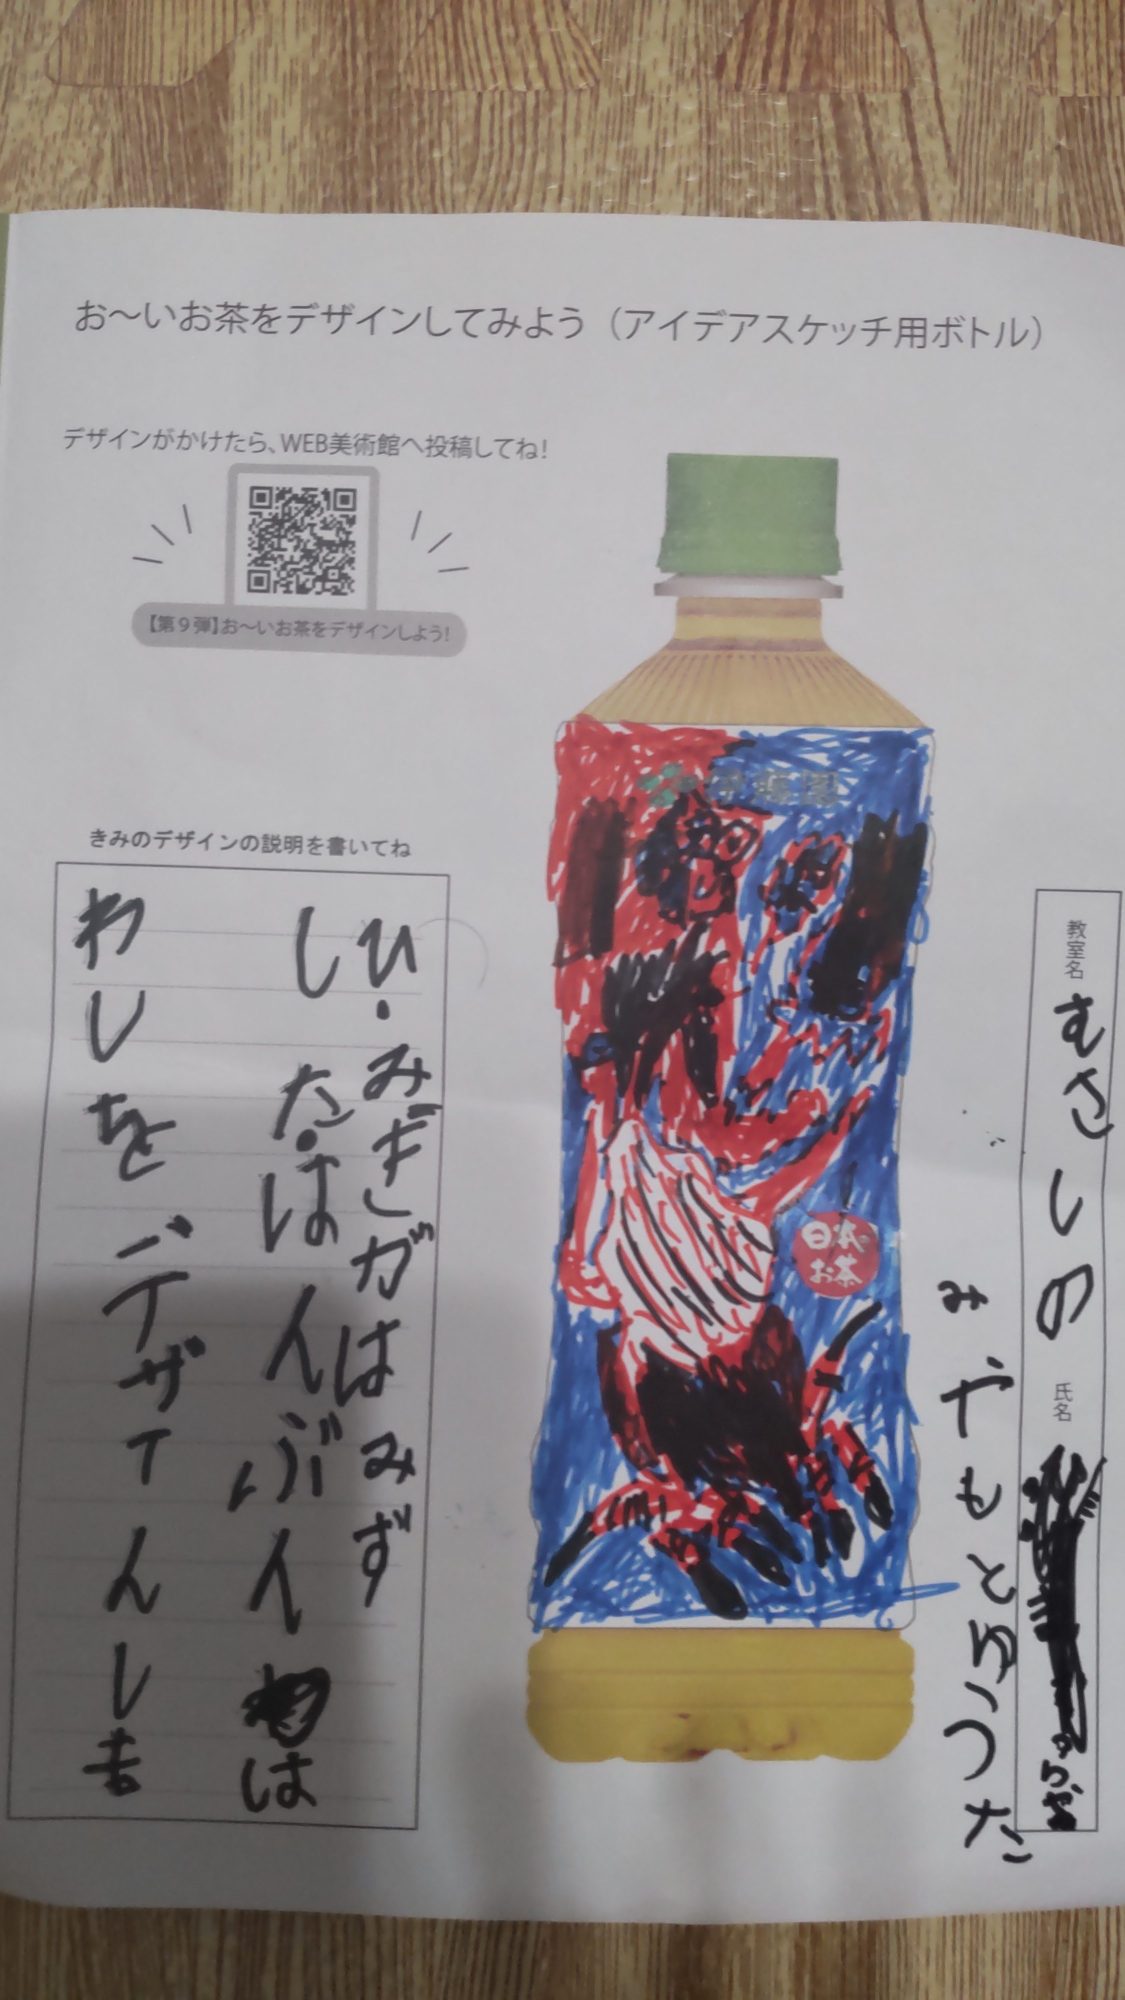 お～いお茶をデザインしてみよう（アイデアスケッチ用ボトル）
デザインがかけたら、WEB美術館へ投稿してね！
【第９弾】お～いお茶をデザインしよう！
伊藤園
日本の
お茶
きみのデザインの説明を書いてね
ひ・みぎがはみず
し た。はんぶんは
わしをデザインしま
教室名
むさしの
氏名
みやもと